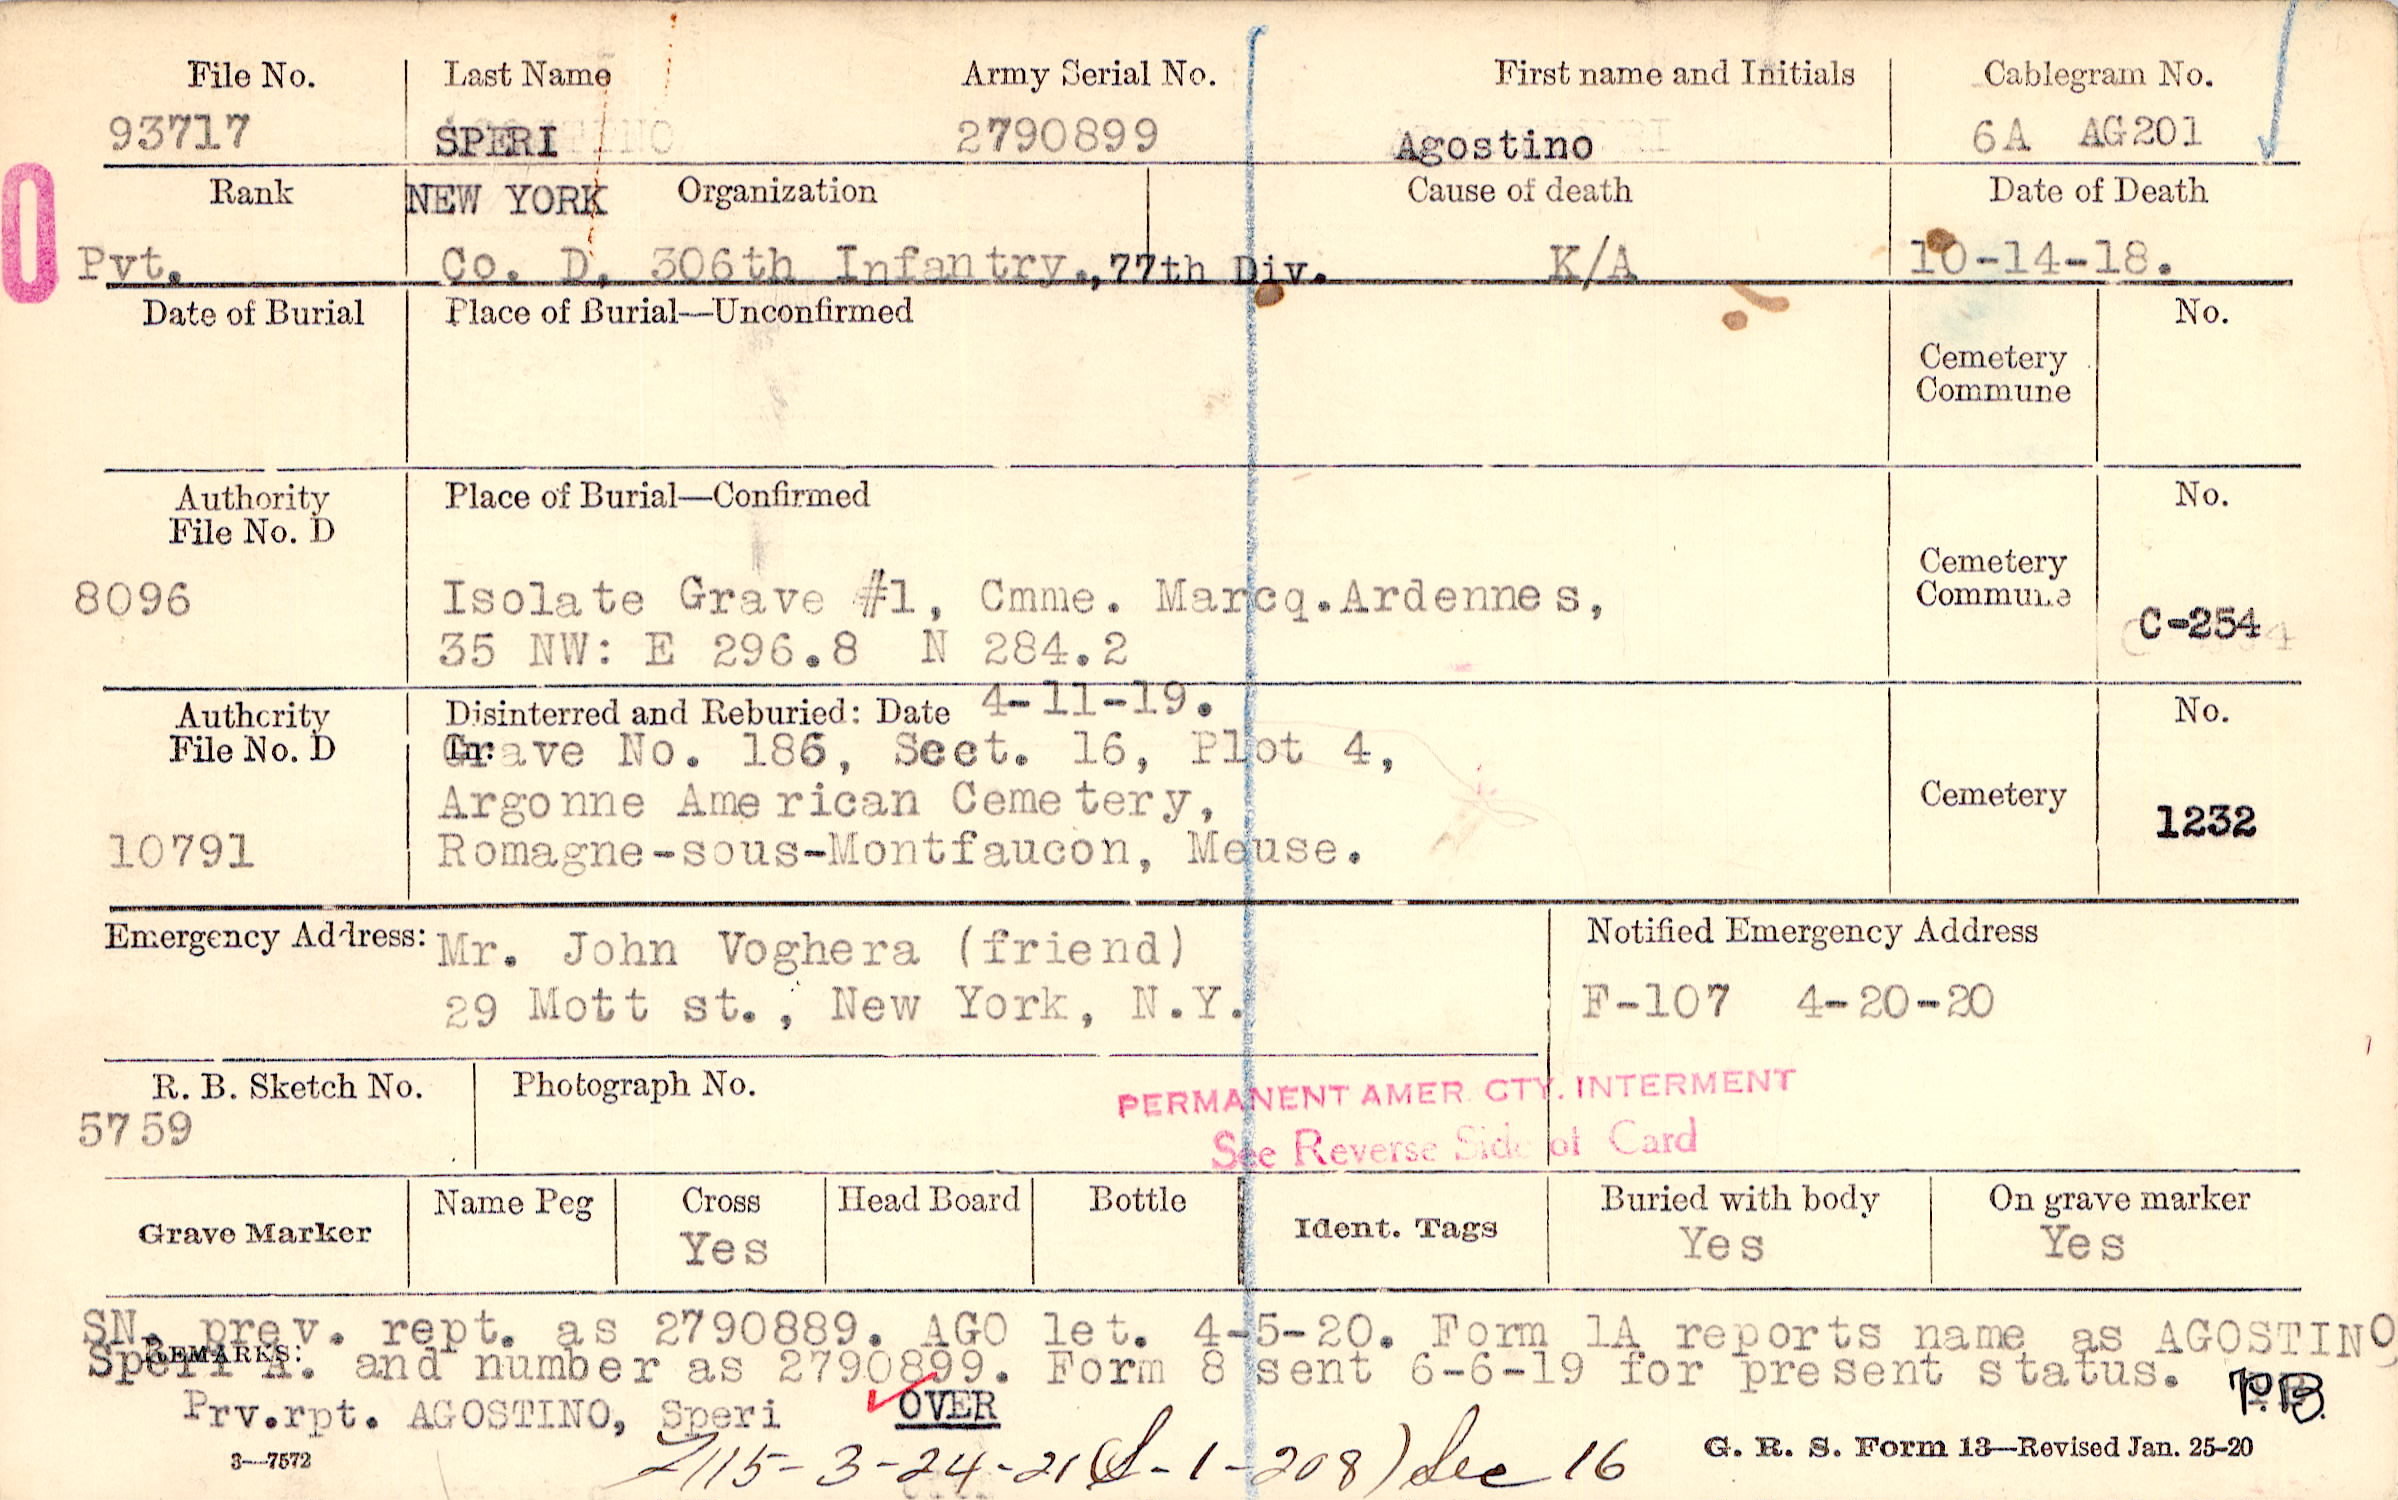 File No. Last Name Army Serial No. First name and Initials Cablegram No.
93717 SPERI 2790899 Agostino 6A AG201
Rank NEW YORK Organization Cause of death Date of Death
Pvt. Co. D, 306th Infantry.,77th Div. K/A 10-14-18.
Date of Burial Place of Burial—Unconfirmed No.
Cemetery
Commune
Authority Place of Burial—Confirmed No.
File No. D
Cemetery
Commune
8096 Isolate Grave #1, Cmme. Marcq.Ardennes, C-254
35 NW: E 296.8 N 284.2
Authority Disinterred and Reburied: Date 4-11-19. No.
File No. D In: Grave No. 186, Sect. 16, Plot 4,
Argonne American Cemetery, Cemetery 1232
10791 Romagne-sous-Montfaucon, Meuse.
Emergency Address: Mr. John Voghera (friend) Notified Emergency Address
29 Mott st., New York, N.Y. F-107 4-20-20
R. B. Sketch No. Photograph No. PERMANENT AMER. CTY. INTERMENT
5759 See Reverse Side of Card
Grave Marker Name Peg Cross Head Board Bottle Ident. Tags Buried with body On grave marker
Yes Yes Yes
SN. prev. rept. as 2790889. AGO let. 4-5-20. Form 1A reports name as AGOSTINO,
REMARKS: Speri A. and number as 2790899. Form 8 sent 6-6-19 for present status.
Prv.rpt. AGOSTINO, Speri OVER P.B.
3—7572 115-3-24-21 (S-1-208) Sec 16 G. R. S. Form 13—Revised Jan. 25-20